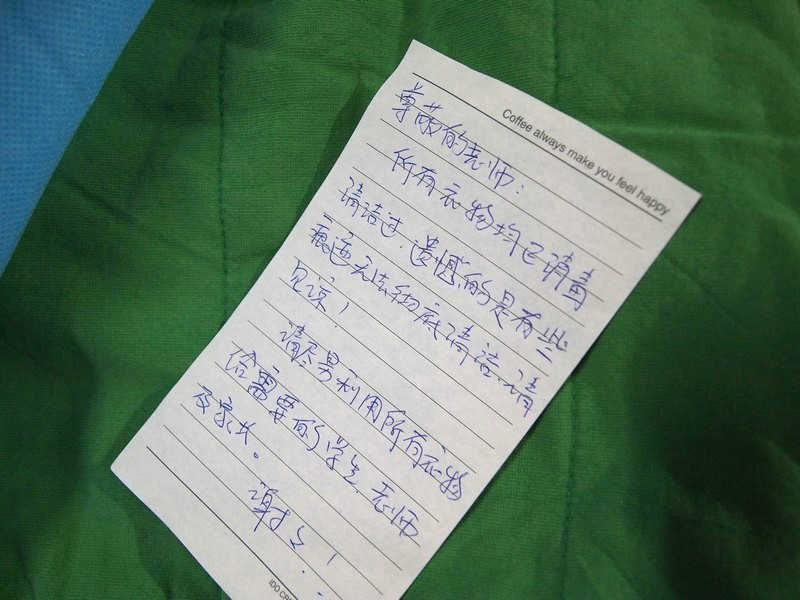 Coffee always make you feel happy
尊敬的老师:
所有衣物均已请
清洁过,遗憾的是有些
痕迹无法彻底清洁,请
见谅!
请尽 利用所有衣物
给需要的学生、老师
及家长。
谢谢!
IDO